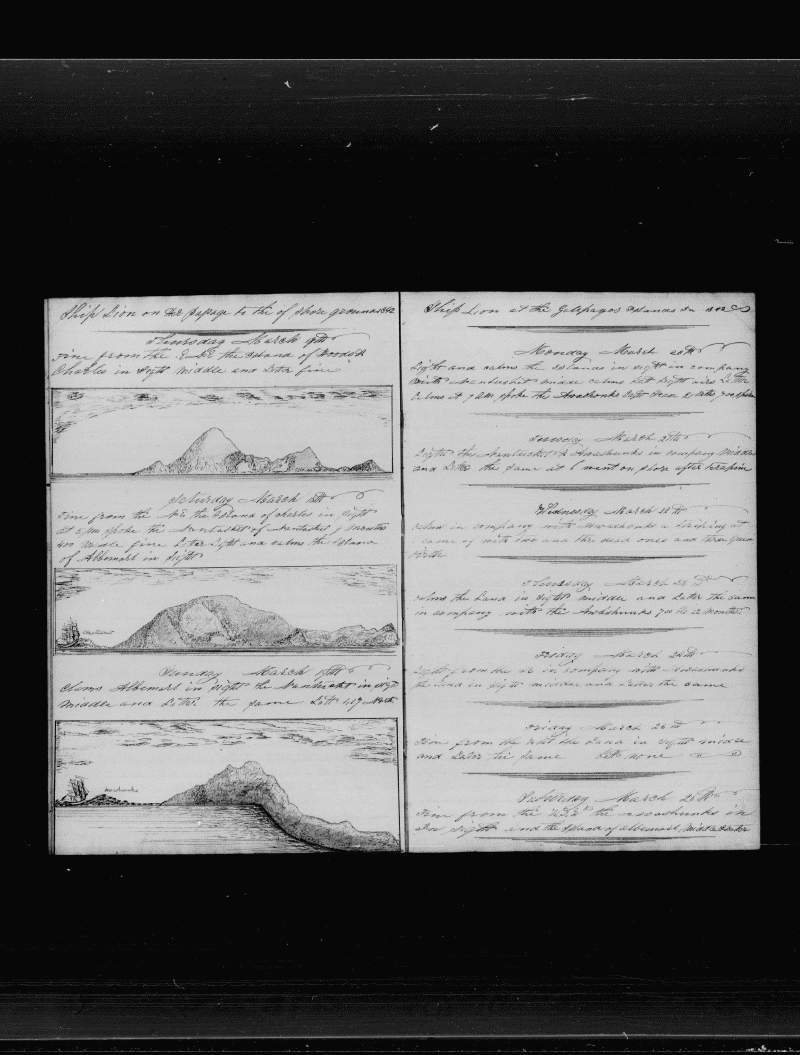 Ship Lion on the pasage to the of shore ground 1842
Thursday March 17th
Fine from the the Island of Woods &
Charles in sight Middle and Later fine
Saturday March 18th
Fine from the NE the Island of charles in sight
at 3 pm spoke the Nantucket of Nantucket 9 months
400 Middle fine Later Light and calms the Island
of Albemarl in sight
Sunday March 19th
Clams Albemarl in sight the Nantucket in sight
Middle and Later the same Latt North
Awashonks
Ship Lion at the Galepagos Islands In 1842
Monday March 20th
Light and calms the Islands in sight in company
with Nantucket Middle calms Latt Light aires Later
Calms at 7 AM spoke the Awashonks
Tuesday March 21th
Light the Nantucket & Awashonks in company Middle
and Later the same at 6 went on shore after terapin
Wednesday March 22th
Calm in company with Awashonks a
came of with two and the dead ones and three Green
Turtle
Thursday March 23
Calms the Land in sight Middle and Later the same
in company with the Awashunks 12 Months
Friday March 24th
Light from the SE in company with Awashunks
the Land in sight Middle and Later the same
Friday March 25th
Fine from the the Land in sight Middle
and Later the same Latt none
Saturday March 26th
Fine from the the Awashunks in
in sight and the Island of albemarl, Mid & Later